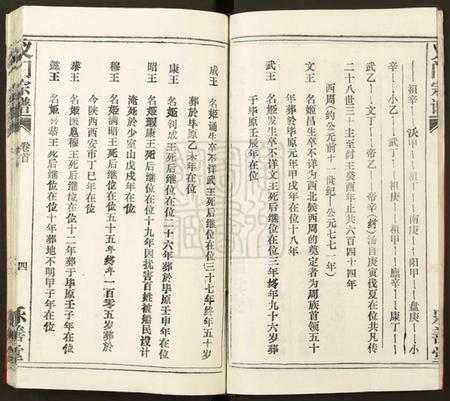 祖辛 沃甲 祖丁 南庚 陽甲 盤庚 小
辛 小乙 武丁 祖庚 祖甲 廩辛 康丁
武乙 文丁 帝乙 帝辛(紂)湯自庚寅伐夏在位共凡傳
二十八世三十主至紂王癸酉年止共六百四十四年
西周(約公元前十一世紀 公元七七一年)
文王 名姬昌生卒不详为西北候西周的奠定者为周族首领五十
年葬於毕原元年甲戌年在位十八年
武王 名姬发生卒不详文王死后继位在位三年终年九十六岁葬
于毕原壬辰年在位
成王 名姬诵生卒不详武王死后继位在位三十七年终年五十岁
葬於毕原乙未年在位
康王 名姬钊成王死后继位在位二十六年葬於毕原壬申年在位
昭王 名姬瑕康王死后继位在位十九年因扰害百姓被船民设计
淹死於少室山戊戌年在位
穆王 名姬满昭王死后继位在位五十五年终年一百零五岁葬於
今陕西西安市丁巳年在位
恭王 名姬 穆王死后继位在位十二年葬于毕原壬子年在位
懿王 名姬 恭王死后继位在位十年葬地不明甲子年在位
义门宗谱
卷首
四
乐善堂